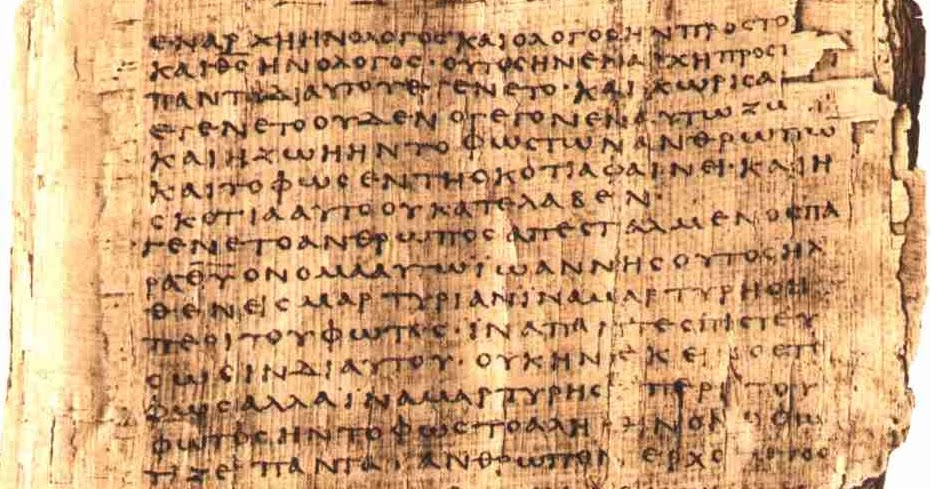 ΕΝΑΡΧΗΗΝΟΛΟΓΟϹΚΑΙΟΛΟΓΟϹΗΝΠΡΟϹΤΟ
ΚΑΙΘ̅Ϲ̅ΗΝΟΛΟΓΟϹ·ΟΥΤΟϹΗΝΕΝΑΡΧΗΠΡΟϹΤ
ΠΑΝΤΑΔΙΑΥΤΟΥΕΓΕΝΕΤΟ·ΚΑΙΧΩΡΙϹΑ
ΕΓΕΝΕΤΟΟΥΔΕΝΟΓΕΓΟΝΕΝΑΥΤΩΖΩ
ΚΑΙΗΖΩΗΗΝΤΟΦΩϹΤΩΝΑΝΘΡΩΠΩ
ΚΑΙΤΟΦΩϹΕΝΤΗϹΚΟΤΙΑΦΑΙΝΕΙ·ΚΑΙΗ
ϹΚΟΤΙΑΑΥΤΟΟΥΚΑΤΕΛΑΒΕΝ·
ΓΕΝΕΤΟΑΝΘΡΩΠΟϹΑΠΕϹΤΑΛΜΕΝΟϹΠΑ
ΡΑΘ̅Υ̅ΟΝΟΜΑΑΥΤΩΙΩΑΝΝΗϹΟΥΤΟϹΗΛ
ΘΕΝΕΙϹΜΑΡΤΥΡΙΑΝΙΝΑΜΑΡΤΥΡΗϹΗ
ΠΕΡΙΤΟΥΦΩΤΟϹ·ΙΝΑΠΑΝΤΕϹΠΙϹΤΕΥ
ϹΩϹΙΝΔΙΑΥΤΟΥ·ΟΥΚΗΝΕΚΕΙΝΟϹ
ΦΩϹΑΛΛΑΙΝΑΜΑΡΤΥΡΗϹΠΕΡΙΤΟΥ
ΦΩΤΟϹΗΝΤΟΦΩϹΤΟΑΛΗΘΙΝΟΝΟΦΩ
ΤΙΖΕΙΠΑΝΤΑΑΝΘΡΩΠΟΝ